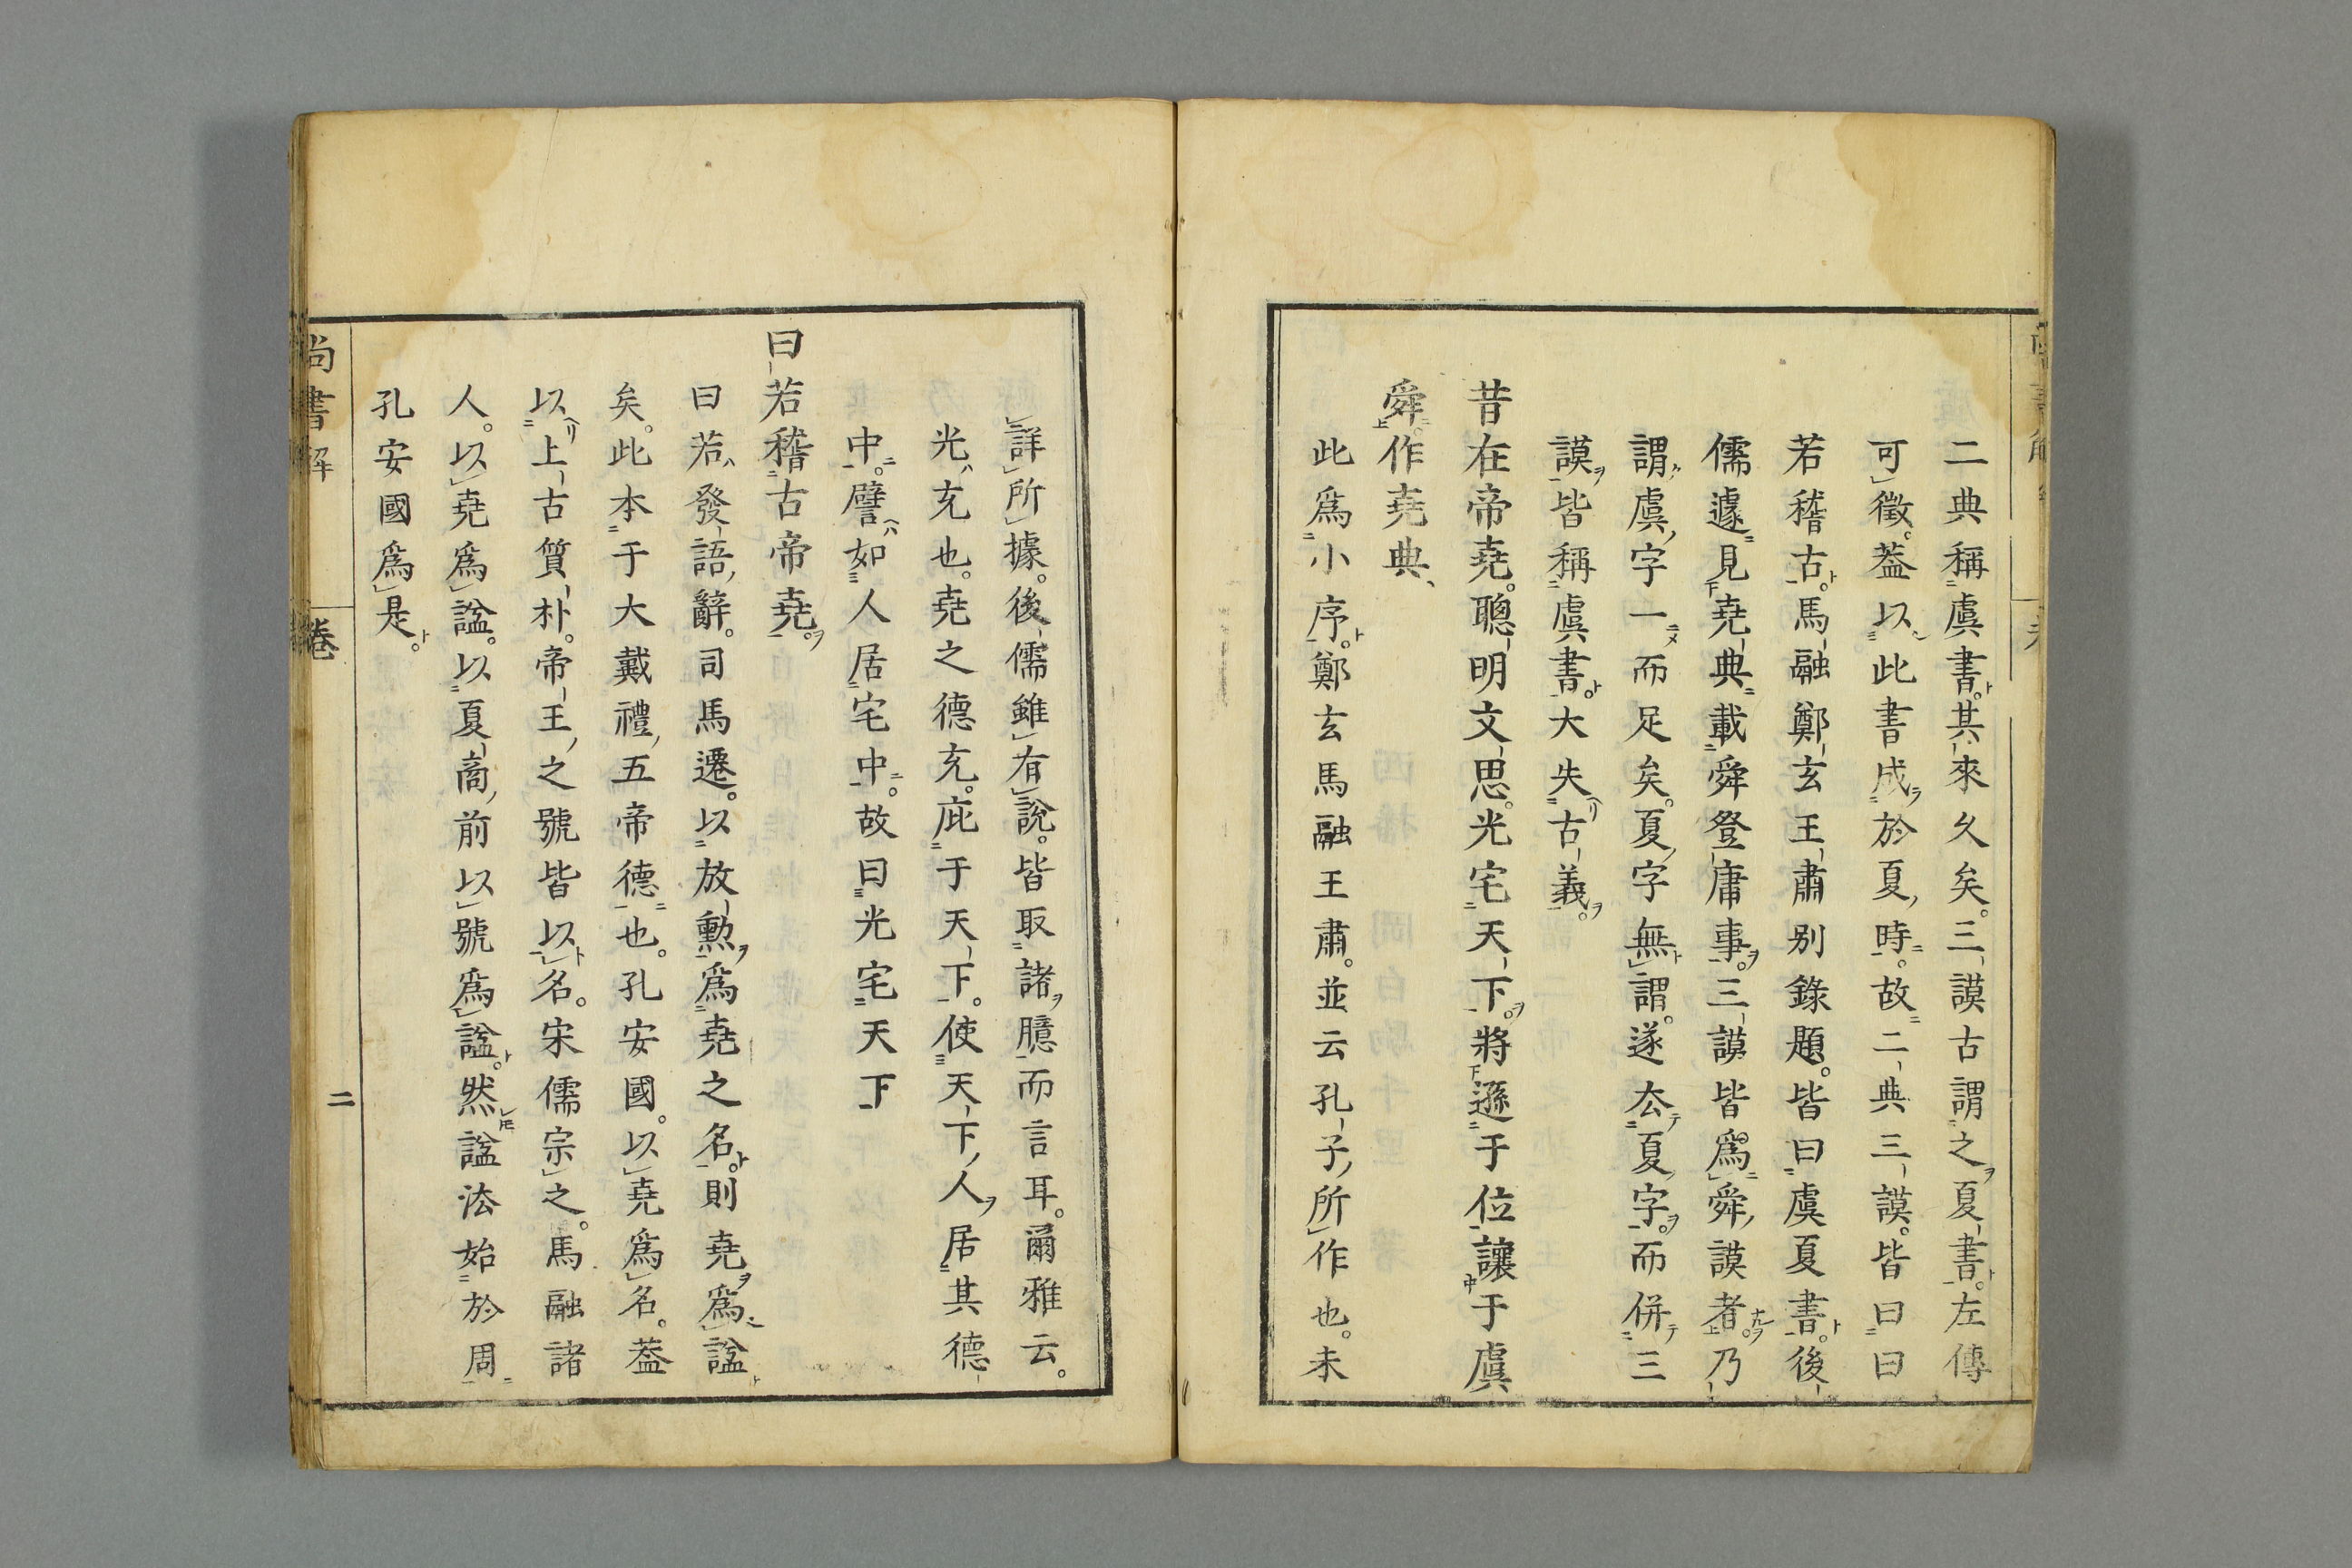 二典稱虞書。其來久矣。三謨古謂之夏書。左傳
可徵。葢以此書成於夏時。故二典三謨。皆曰曰
若稽古。馬融鄭玄王肅別錄題。皆曰虞夏書。後
儒遽見堯典載舜登庸事。三謨皆爲舜謨者。乃
謂虞字一而足矣。夏字無謂。遂厺夏字。而併三
謨皆稱虞書。大失古義。
昔在帝堯。聰明文思。光宅天下。將遜于位讓于虞
舜。作堯典、
此爲小序。鄭玄馬融王肅。並云孔子所作也。未
詳所據。後儒雖有說。皆取諸臆而言耳。爾雅云。
光充也。堯之德充。庇于天下。使天下人居其德
中。譬如人居宅中。故曰光宅天下
曰若稽古帝堯。
曰若發語辭。司馬遷。以放勳爲堯之名。則堯爲諡
矣。此本于大戴禮五帝德也。孔安國。以堯爲名。葢
以上古質朴。帝王之號皆以名。宋儒宗之。馬融諸
人。以堯爲諡。以夏商前以號爲諡。然諡法始於周
孔安國爲是。
尚書解
卷
二